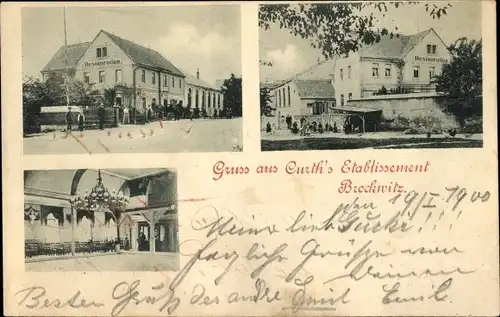 Restauration.
Restauration
Gruss aus Curth's Etablissement
Brockwitz.
den 19/I 1900
Meine lieb
herzliche Grüße von
Besten Gruß der andre Emil Emil.